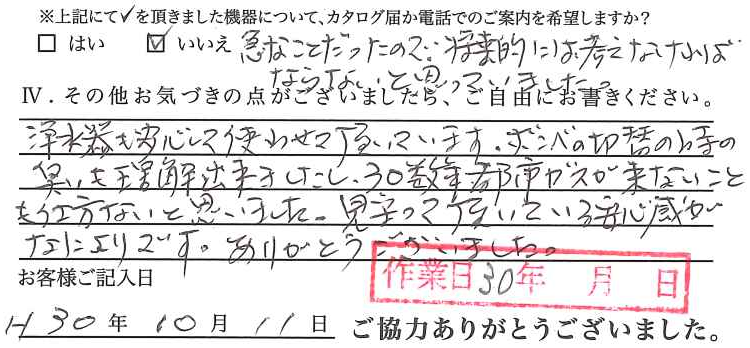 ※上記にて✓を頂きました機器について、カタログ届か電話でのご案内を希望しますか?
□ はい ☑ いいえ 急なことだったので、将来的には考えなければ
ならないと思っていました。
Ⅳ．その他お気づきの点がございましたら、ご自由にお書きください。
浄水器も安心して使わせて頂いています。ボンベの切替の時の
臭いも理解出来ましたし、30数年都市ガスが来ないこと
も仕方ないと思いました。見守って頂いている安心感が
なによりです。ありがとうございました。
お客様ご記入日
作業日 30年 月 日
H30年 10月 11日 ご協力ありがとうございました。